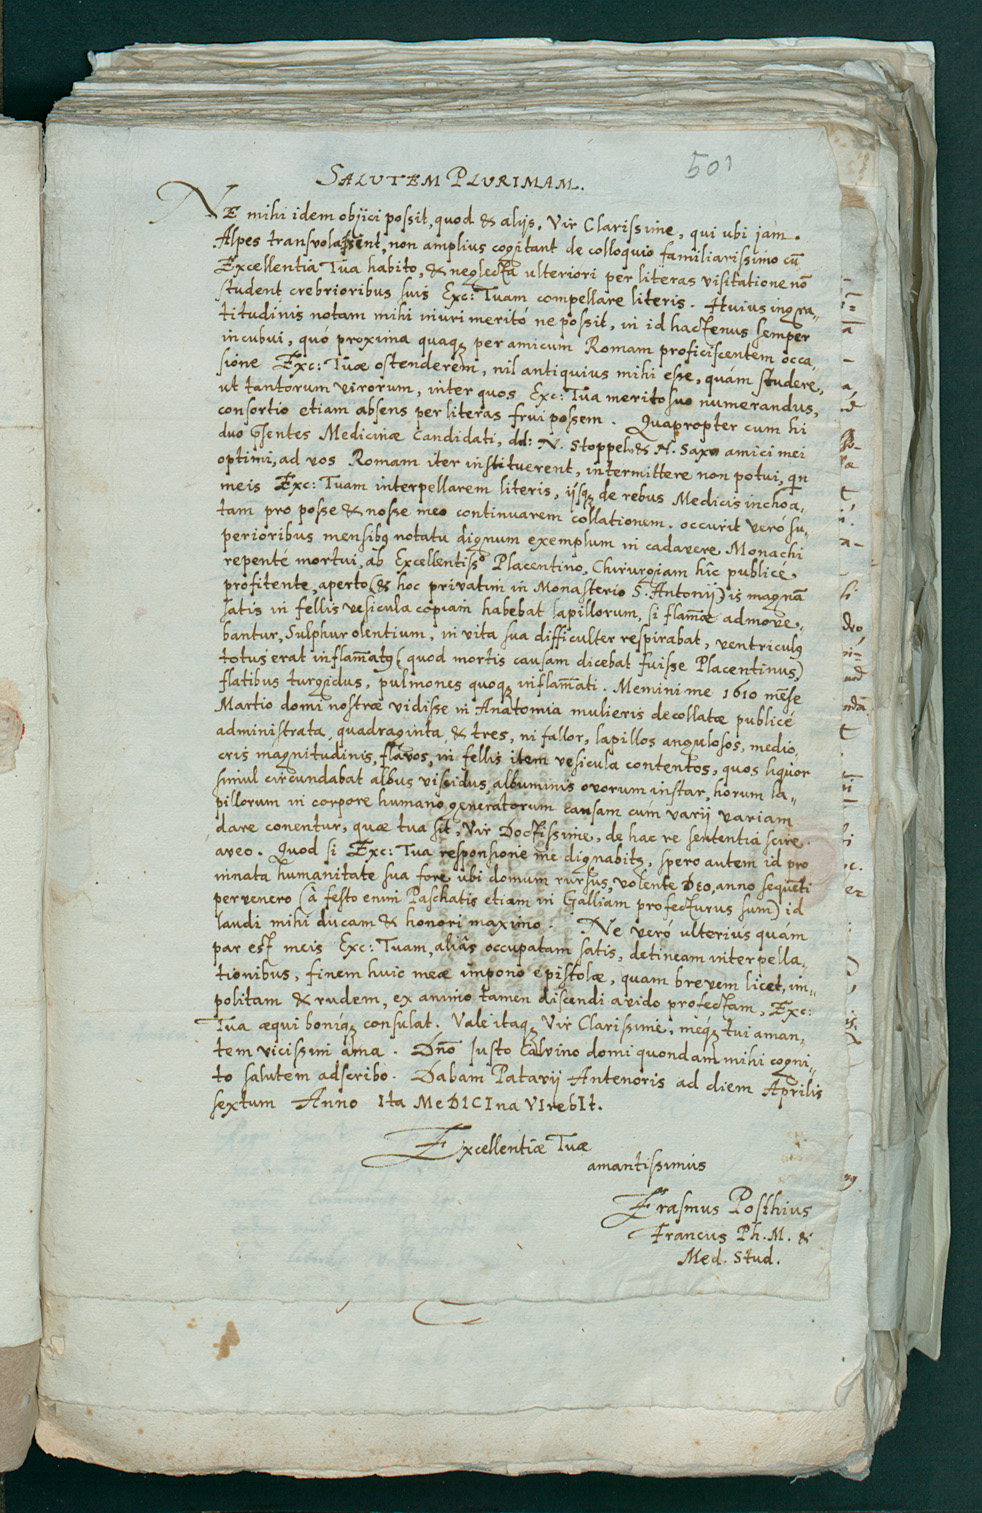 501
SALUTEM PLURIMAM.
NE mihi idem objici possit, quod & alijs, Vir Clarissime, qui ubi jam
Alpes transvolassent, non amplius cogitant de colloquio familiarissimo cū
Excellentia Tua habito, & neglecta ulteriori per literas visitatione nō
student crebrioribus suis Exc: Tuam compellare literis. Huius ingra-
titudinis notam mihi inuri meritó ne possit, in id hactenus semper
incubui, quó proxima quaq; per amicum Romam proficiscentem occa-
sione Exc: Tuæ ostenderem, nil antiquius mihi esse, quám studere,
ut tantorum virorum, inter quos Exc: Tua merito suo numerandus,
consortio etiam absens per literas frui possem. Quapropter cum hi
duo Gsentes Medicinæ Candidati, dd: N. Stoppel & H. Saxo amici mei
optimi, ad vos Romam iter instituerent, intermittere non potui, qin
meis Exc: Tuam interpellarem literis, ijsq; de rebus Medicis inchoa-
tam pro posse & nosse meo continuarem collationem. occurit veró su-
perioribus mensibq notatu dignum exemplum in cadavere Monachi
repenté mortui, ab Excellentiss.o Placentino, Chirurgiam hîc publicé
profitente, aperto (& hoc privatim in Monasterio S. Antonij) is magnā
satis in fellis vesicula copiam habebat lapillorum, si flam̄æ admove-
bantur, sulphur olentium, in vita sua difficulter respirabat, ventriculq
totus erat inflam̄atq (quod mortis causam dicebat fuisse Placentinus)
flatibus turgidus, pulmones quoq; inflam̄ati. Memini me 1610 mēse
Martio domi nostræ vidisse in Anatomia mulieris decollatæ publicé
administrata, quadraginta & tres, ni fallor, lapillos angulosos, medio-
cris magnitudinis, flavos, in fellis item vesicula contentos, quos liquor
simul circundabat albus viscidus, albuminis ovorum instar, horum la-
pillorum in corpore humano generatorum causam cúm varij variam
dare conentur, quæ tua sit, Vir Doctissime, de hac re sententia scire
aveo. Quod si Exc: Tua responsione me dignabitq, spero autem id pro
innata humanitate sua fore ubi domum rursus, volente DEO, anno sequēti
pervenero (à festo enim Paschatis etiam in Galliam profecturus sum) id
laudi mihi ducam & honori maximo. Ne veró ulterius quám
par est meis Exc: Tuam, aliàs occupatam satis, detineam interpella-
tionibus, finem huic meæ impono epistolæ, quam brevem licet, im-
politam & rudem, ex animo tamen discendi avido profectam, Exc:
Tua æqui boniq; consulat. Vale itaq; Vir Clarissimé, meq; tui aman-
tem vicissim ama. Dn̄o Justo Calvino domi quondam mihi cogni-
to salutem adscribo. Dabam Patavij Antenoris ad diem Aprilis
sextum Anno Ita MeDICIna VIrebIt.
Excellentiæ Tuæ
amantissimus
Erasmus Posthius
Francus Ph. M. &
Med. Stud.